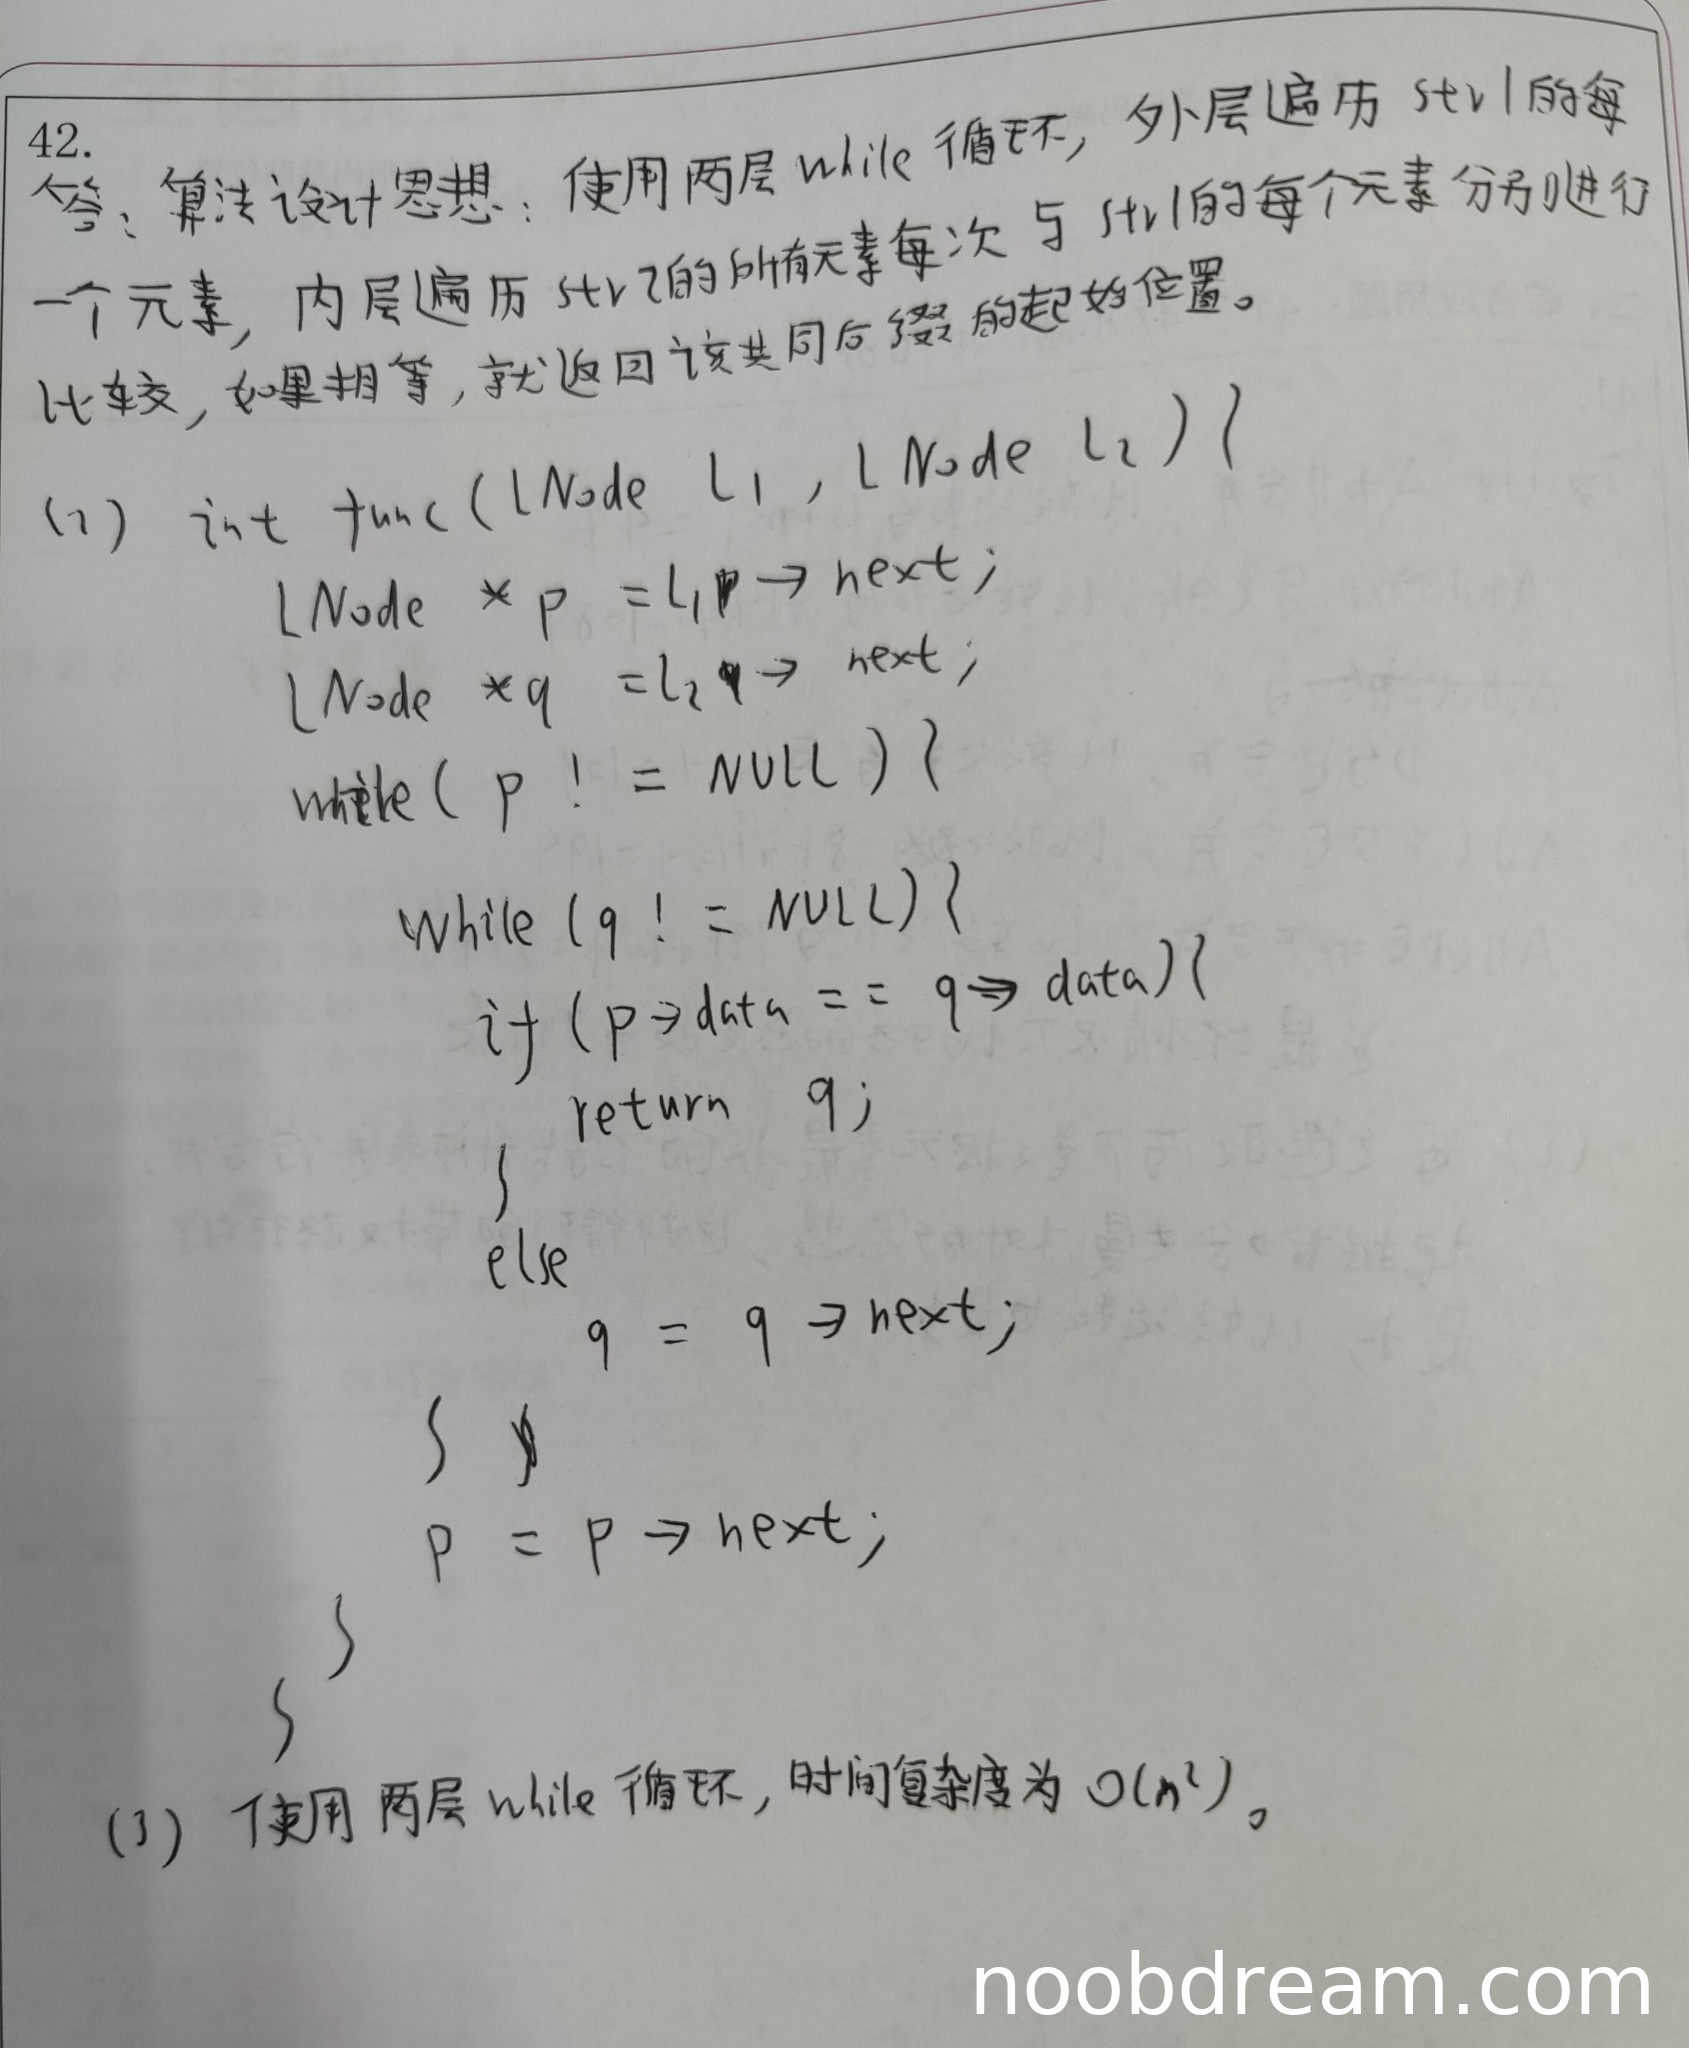 42.
答：算法设计思想：使用两层while循环，外层遍历str1的每
一个元素，内层遍历str2的所有元素每次与str1的每个元素分别进行
比较，如果相等，就返回该共同后缀的起始位置。
(2) int func(LNode L1, LNode L2){
LNode *p =L1->next;
LNode *q =L2->next;
while(p != NULL){
while(q != NULL){
if(p->data == q->data){
return q;
}
else
q = q->next;
}
p = p->next;
}
}
(3) 使用两层while循环，时间复杂度为O(n²)。
noobdream.com